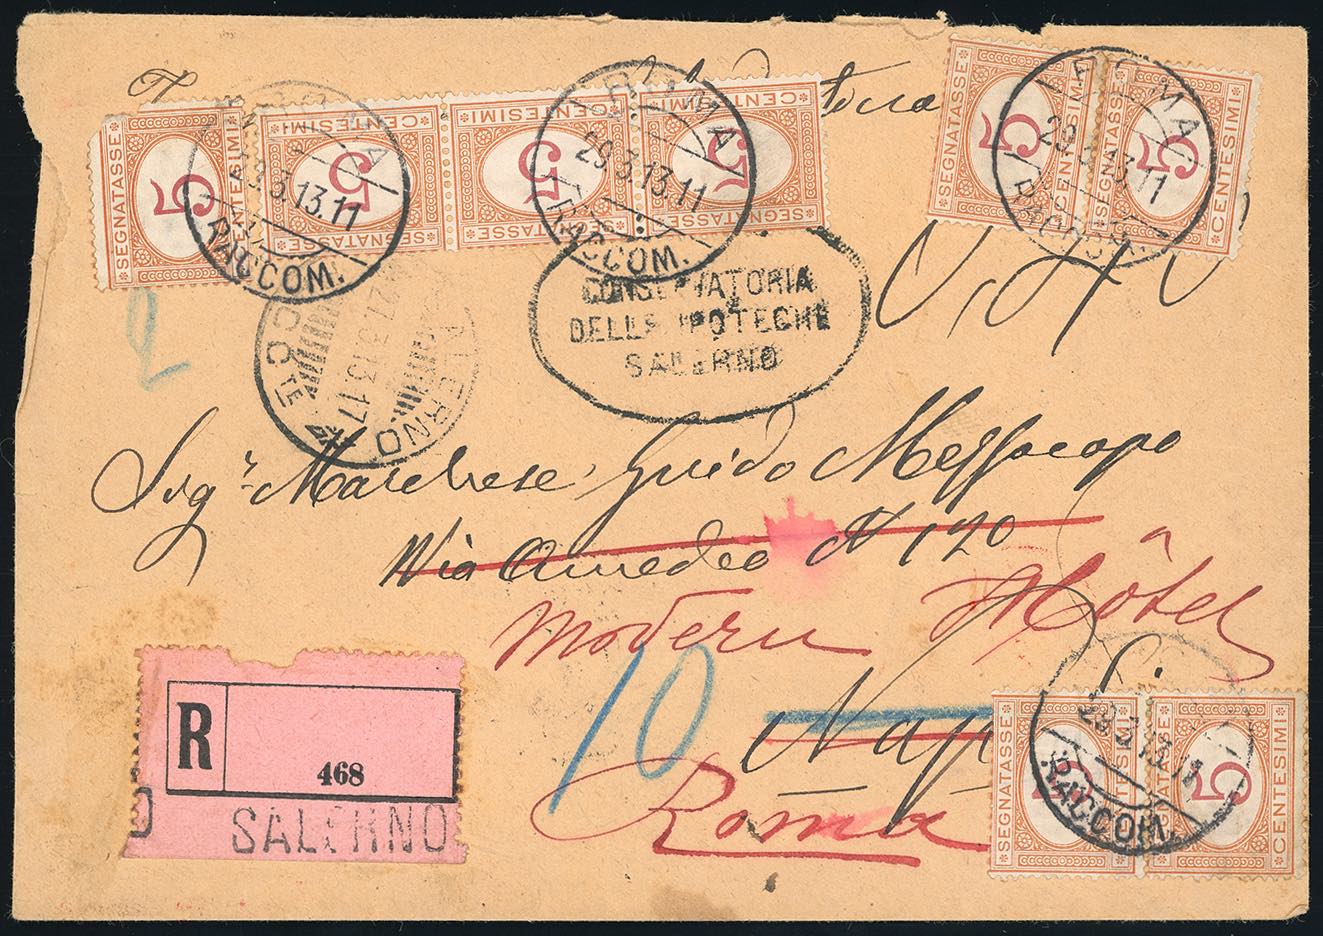 SEGNATASSE 5 CENTESIMI
SEGNATASSE 5 CENTESIMI
SEGNATASSE 5 CENTESIMI
SEGNATASSE 5 CENTESIMI
SEGNATASSE 5 CENTESIMI
SEGNATASSE 5 CENTESIMI
ROMA
29.3.13.11
RACCOM.
ROMA
29.3.13.11
RACCOM.
ROMA
29.3.13.11
2
SALERNO
27.3.13.17
CONSERVATORIA
DELLE IPOTECHE
SALERNO
Sigr Marchese Guido Messacapo
Via Amedeo N 120
Modern Hôtel
10
Roma
R
468
SALERNO
SEGNATASSE 5 CENTESIMI
SEGNATASSE 5 CENTESIMI
29.3.13.11
RACCOM.